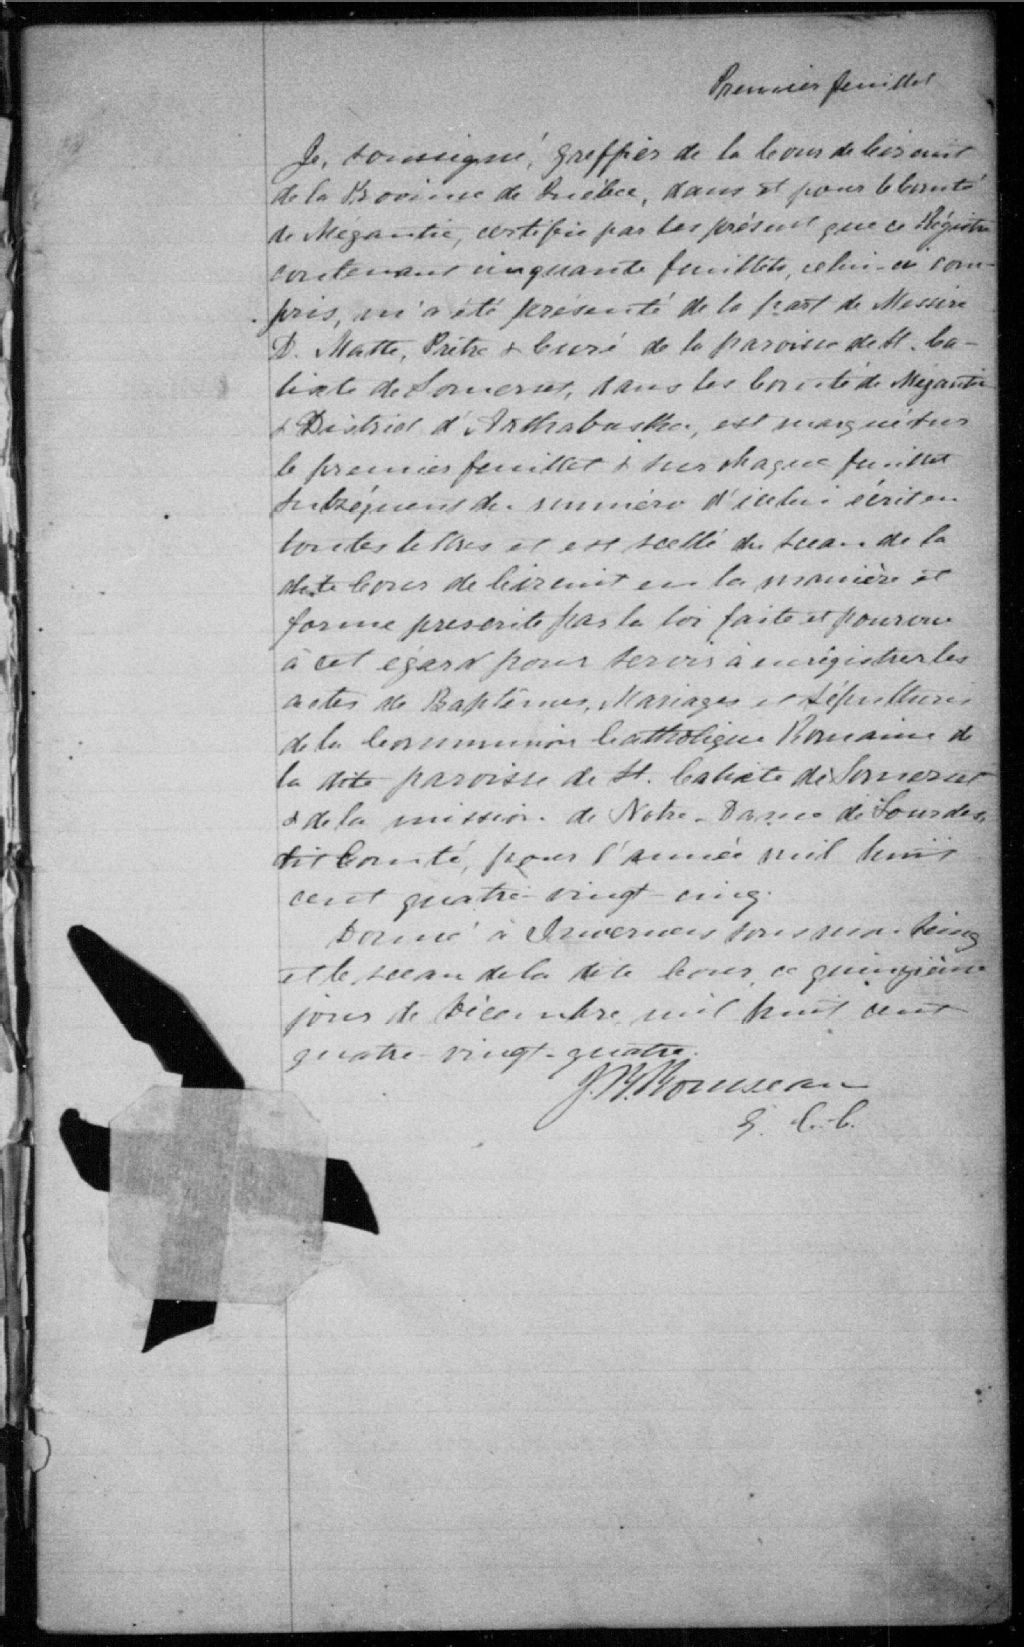 Premier feuillet
Je, soussigné, greffier de la Cour de Circuit
de la Province de Québec, dans et pour le Comté
de Mégantic, certifie par les présent que ce Régistre
contenant cinquante feuillets, celui-ci com-
pris, m'a été présenté de la part de Messire
D. Matte, Prêtre & Curé de la paroisse de St. Ca-
lixte de Somerset, dans les Comté de Mégantic
& District d'Arthabaska, est marqué sur
le premier feuillet & sur chaque feuillet
subséquent du numéro d'icelui écrit en
toutes lettres et est scellé du sceau de la
dite Cour de Circuit en la manière et
forme prescrite par la loi faite et pourvue
à cet égard pour servir à enrégistrer les
actes de Baptêmes, Mariages et Sépultures
de la Communion Catholique Romaine de
la dite paroisse de St. Calixte de Somerset
& de la mission de Notre-Dame de Lourdes,
dit Comté, pour l'année mil huit
cent quatre-vingt-cinq.
Donné à Inverness sous mon seing
et le sceau de la dite Cour, ce quinzième
jour de Décembre mil huit cent
quatre-vingt-quatre.
J. B. Rousseau
G. C. C.